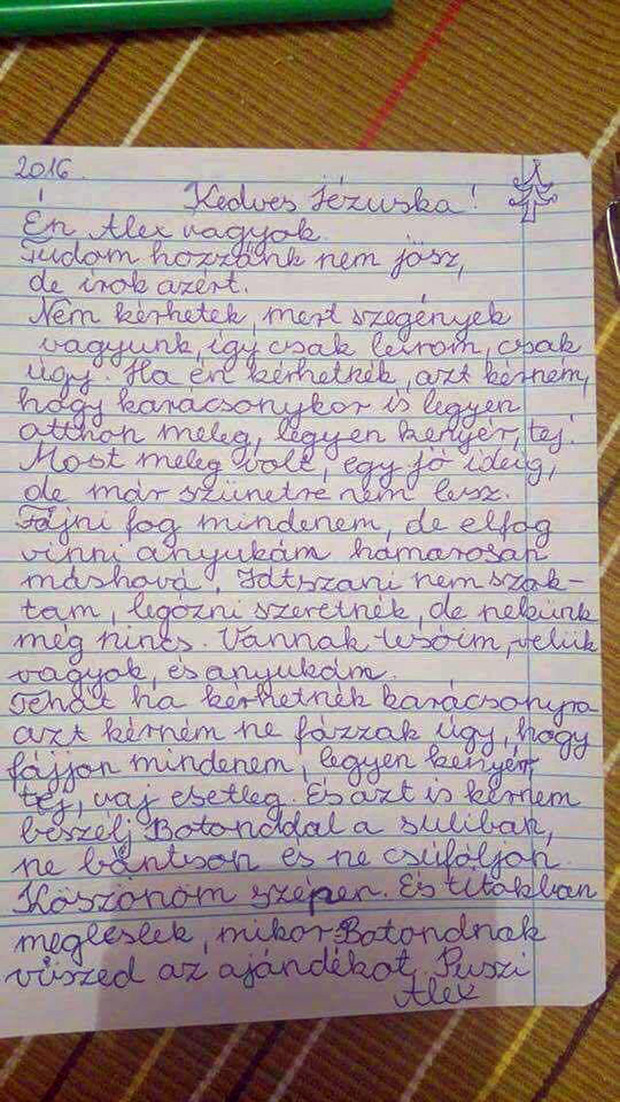 2016.
Kedves Jézuska!
Én Alex vagyok.
Tudom hozzánk nem jösz,
de írok azért.
Nem kérhetek, mert szegények
vagyunk, így csak leírom, csak
úgy. Ha én kérhetnék, azt kérném,
hogy karácsonykor is legyen
otthon meleg, legyen kenyér, tej.
Most meleg volt, egy jó ideig,
de már szünetre nem lesz.
Fájni fog mindenem, de elfog
vinni anyukám hamarosan
máshová. Játszani nem szok-
tam, legózni szeretnék, de nekünk
még nincs. Vannak tesóim, velük
vagyok, és anyukám.
Tehát ha kérhetnék karácsonyra
azt kérném ne fázzak úgy, hogy
fájjon mindenem, legyen kenyér,
tej, vaj esetleg. És azt is kérném
beszélj Botonddal a suliban,
ne bántson és ne csúfoljon.
Köszönöm szépen. És titokban
megleslek, mikor Botondnak
viszed az ajándékot. Puszi
Alex